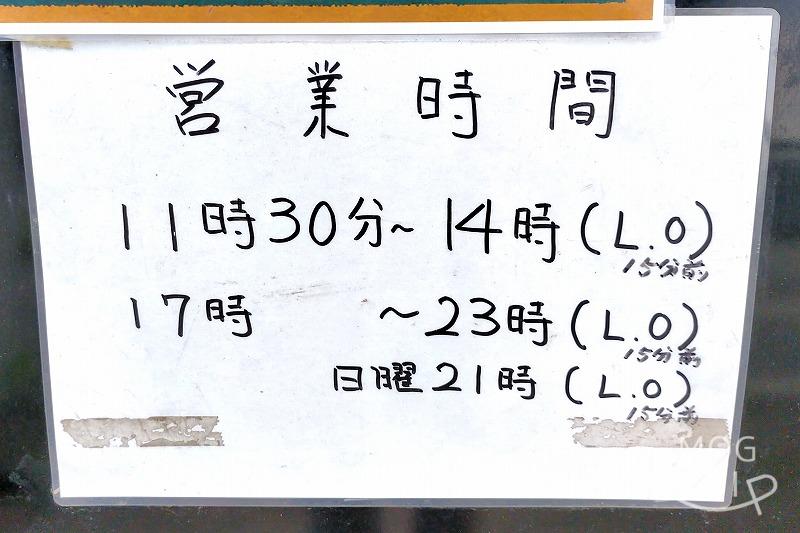 営業時間
11時30分~14時(L.O)
15分前
17時 ~23時(L.O)
15分前
日曜21時(L.O)
15分前
MOG
IP